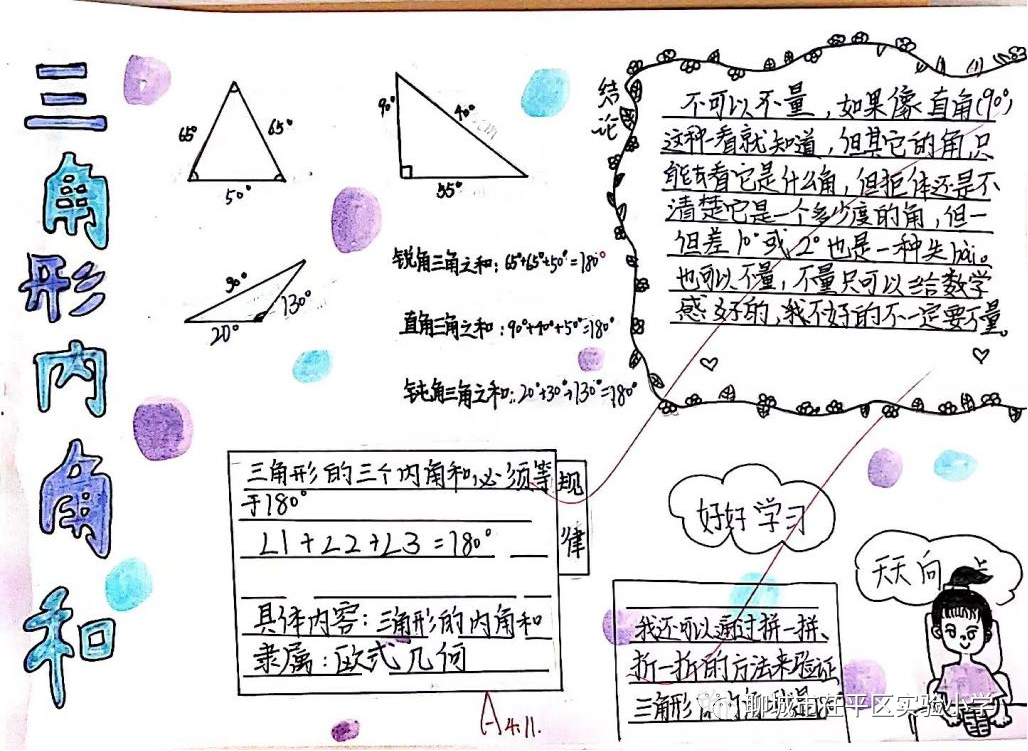 三角形内角和
65°
65°
50°
90°
40°
55°
30°
130°
20°
锐角三角之和：65°+65°+50°=180°
直角三角之和：90°+40°+50°=180°
钝角三角之和：20°+30°+130°=180°
结论
不可以不量，如果像直角(90°)
这种一看就知道，但其它的角，只
能去看它是什么角，但具体还是不
清楚它是一个多少度的角，但一
但差10°或2°也是一种失
也可以不量，不量只可以给数学
感好的，我不好的不一定要不量。
规律
三角形的三个内角和，必须等
于180°
∠1+∠2+∠3=180°
具体内容：三角形的内角和
隶属：欧式几何
A 4.11.
好好学习
天天向上
我还可以通过拼一拼、
折一折的方法来验证
三角形
聊城市茌平区实验小学